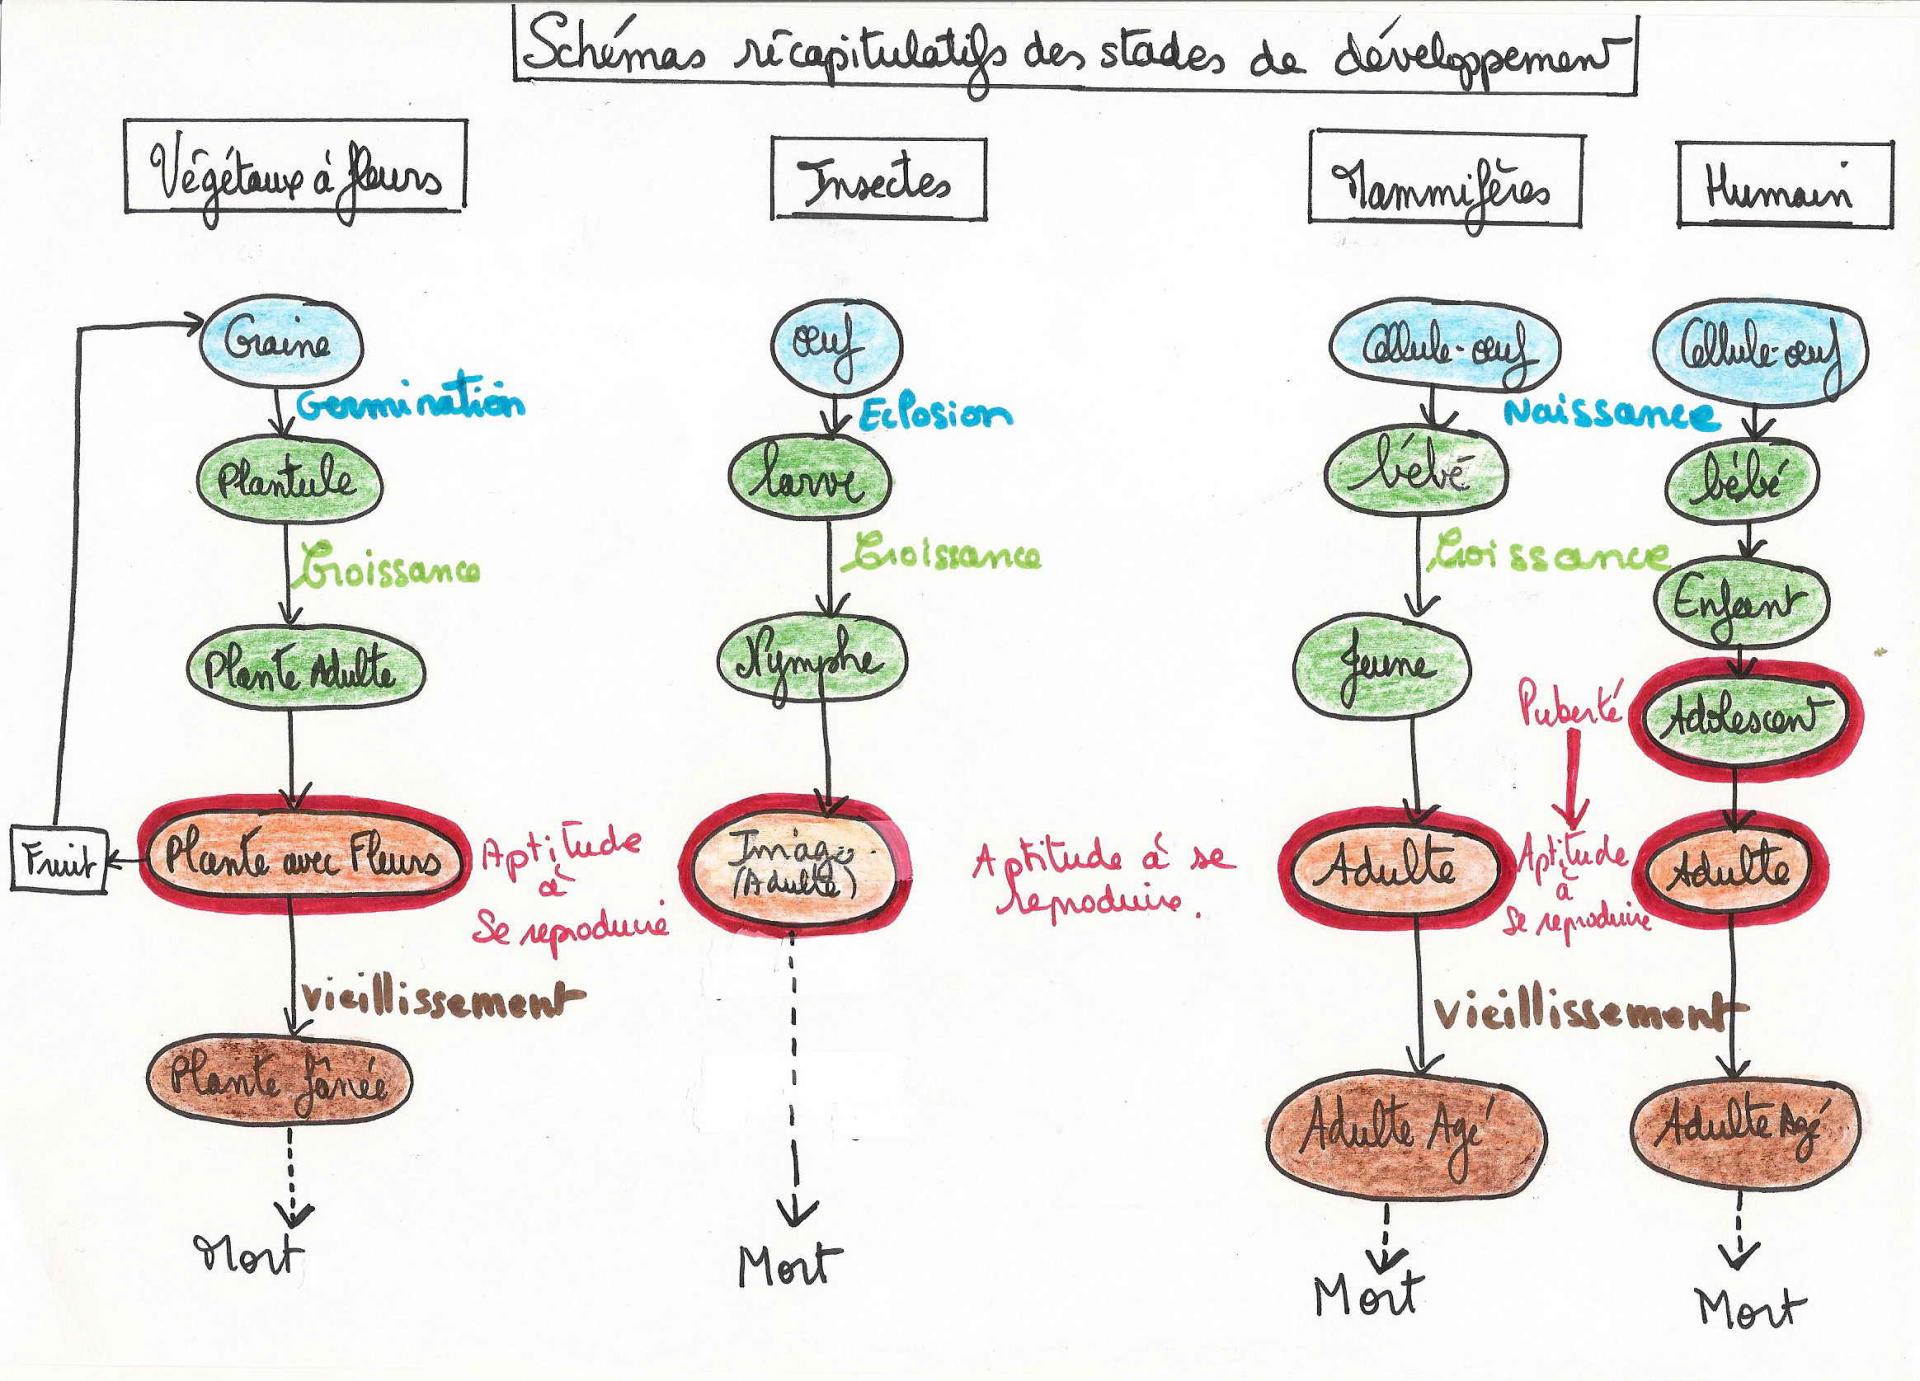 Schémas récapitulatifs des stades de développement
Végétaux à fleurs
Insectes
Mammifères
Humain
Graine
Germination
Plantule
Croissance
Plante Adulte
Plante avec Fleurs
Fruit
Aptitude
à
Se reproduire
vieillissement
Plante fânée
Mort
œuf
Eclosion
larve
Croissance
Nymphe
Imago
(Adulte)
Aptitude à se
reproduire.
Mort
Cellule-œuf
Naissance
bébé
Croissance
Jeune
Adulte
vieillissement
Adulte Agé
Mort
Cellule-œuf
bébé
Enfant
Puberté
Adolescent
Aptitude
à
Se reproduire
Adulte
Adulte Agé
Mort